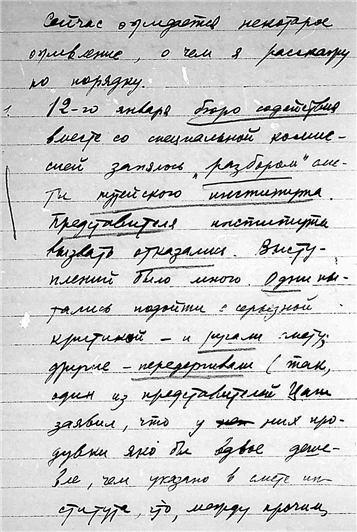 Сейчас ожидается некоторое
оживление, о чем я расскажу
по порядку.
1. 12-го января бюро содействия
вместе со специальной комис-
сией занялось „разбором" сме-
ты института.
Представителя института
вызвать отказались. Высту-
плений было много. Одни пы-
тались подойти с серьезной
критикой – и ругали смету,
другие – передергивали (так,
один из представителей
заявил, что у них про-
дувки яко бы вдвое деше-
вле, чем указано в смете ин-
ститута, что между прочим